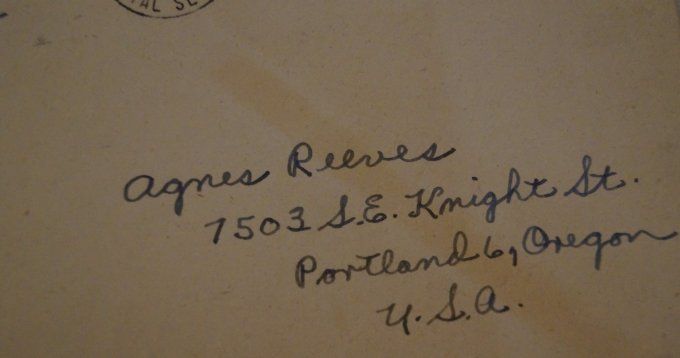 TAL SE
Agnes Reeves
7503 S.E. Knight St.
Portland 6, Oregon
U.S.A.